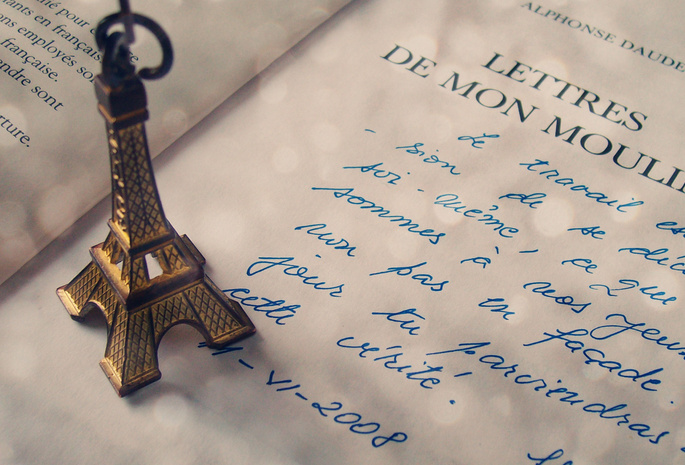 pour
en français
ons employés so
française.
endre sont
rture.
ALPHONSE DAUDE
LETTRES
DE MON MOULI
Le travail es
- sion de se déc
soi-même, ce que
sommes à nos yeux
non pas en façade.
jour tu parviendras
cette vérité.
11-VI-2008